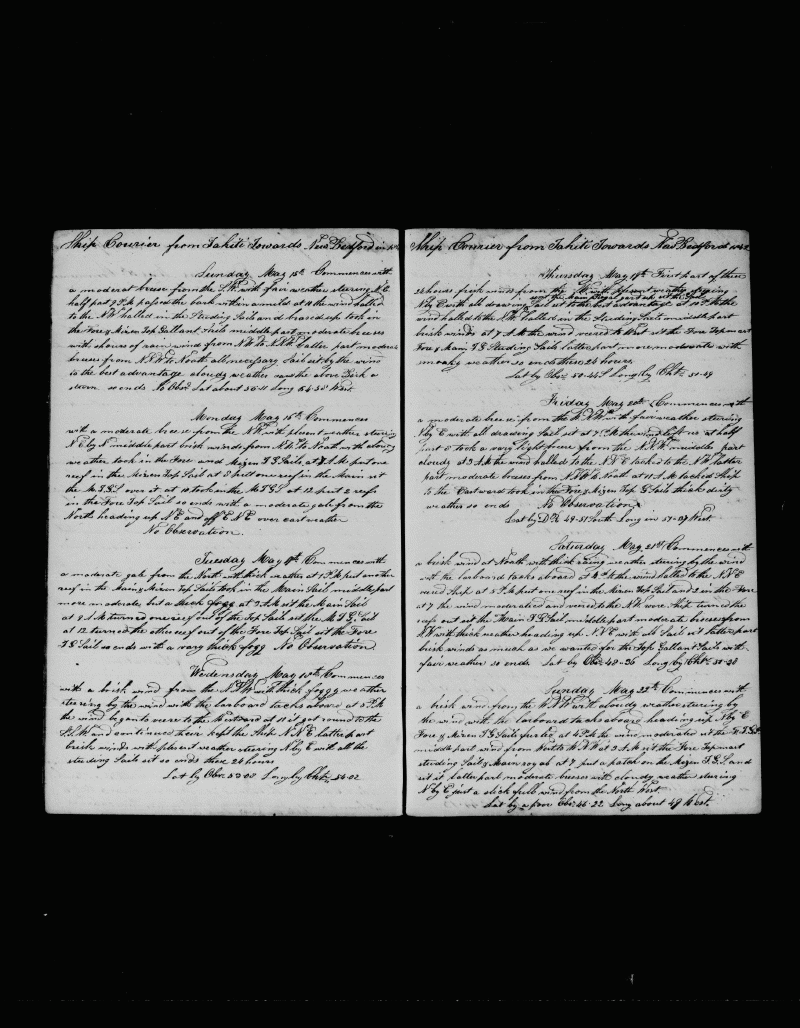 Ship Courier from Tahiti Towards New Bedford in
Sunday May 15th Commences with
a moderat breese from the S.W. with fair weather steering N.E.
half past 2 P.M. passed the bark within a mild at 10 the wind halled
to the N.W. halled in the Studing Sail and braced up took in
the Fore & Mizen Top Gallant Sails middle part moderate breeses
with shours of rain wind from N.W. to N.N.W. Latter part moderate
breeses from N.N.W. to North all necessary Sail set by the wind
to the best advantage cloudy weather saw the above Bark a
stern so ends No Obsr Lat about 56-11 Long 64-38 West
Monday May 16th Commences
with a moderate breese from the N.W. with plesent weather steering
N E by N middle part brisk winds from N.W. to North with cloudy
weather took in the Fore and Mizen T.G. Sails, at 7 A.M. put one
reef in the Mizen Top Sail at 8 put one reef in the Main set
the M.T.G.S. over it at 10 took in the M.T.G.S at 12 put 2 reefs
in the Fore Top Sail so ends with a moderate gale from the
North heading up N.E. and off E.N.E over cast weather
No Observation.
Tuesday May 17th Commences with
a moderate gale from the North with thick weather at 1 P.M. put another
reef in the Main & Mizen Top Sails took in the Main Sail middle part
more moderate but a thick fogg at 3 A.M. set the Main Sail
at 8 A.M. turned one reef out of the Top Sails set the M.T.G. Sail
at 12 turned the other reef out of the Fore Top Sail set the Fore
T.G. Sail so ends with a vary thick fogg No Observation
Wedensday May 18th Commences
with a brisk wind from the N.N.W. with thick foggy weather
steering by the wind with the larboard tacks aboard at 5 P.M
the wind began to veere to the Westward at 11 it got round to the
S.S.W and continued their kept the Ship N.N.E. latter part
brisk winds with plesent weather steering N by E with all the
studing Sails set so ends these 24 hours
Lat by Obsr 53-00 Long by Cht 54-02
Ship Courier from Tahiti Towards New Bedford 1842
Thursday May 19th First part of these
24 hours fresh winds from the W. with plesent weather steering
N by E with all drawing Sail set to the best advantage at 10 P.M. the
wind halled to the N.W. halled in the Studing Sails middle part
brisk winds at 7 A.M. the wind veered to West set the Fore Topmast
Fore & Main T.G Studing Sails latter part more moderate with
smoaky weather so ends these 24 hours,
Lat by Obsr 50-44 S Long by Cht 51-49
Friday May 20th Commences with
a moderate breese from the W.N.W. with fair weather steering
N by E with all drawing Sail set at
past 5 took a vary light breese from the N.N.W. middle part
cloudy at 3 A.M. the wind halled to the N.N.E tacked to the N.W. latter
part moderate breeses from N.N.W. to North at 11 A.M. tacked Ship
to the Eastward took in the Fore & Mizen Top G Sails thick dirty
weather so ends No Observation
Lat by D.R. 49-51 South Long in 51-07 West.
Saturday May 21st Commences with
a brisk wind at North with thick rainy weather steering by the wind
with the larboard tacks aboard at 4 P.M. the wind halled to the N.N.E
veered Ship at 5 P.M. put one reef in the Mizen Top Sail and 2 in the Fore
at 7 the wind moderatied and vereed to the N.W. wore Ship turned the
reefs out set the Main T.G. Sail middle part moderate breeses from
N.W. with thick weather heading up N.N.E. with all Sail set latter part
brisk winds as much as we wanted for the Top Gallant Sails with
fair weather so ends Lat by Obsr 48-26 Long by Cht 50-28
Sunday May 22nd Commences with
a brisk wind from the W.N.W with cloudy weather steering by
the wind with the larboard tacks aboard heading up N by E
Fore & Mizen T.G Sails furled at 4 P.M. the wind moderated set the F.T.G.S
middle part wind from North W. to W at 3 A.M set the Fore Topmast
studing Sail & Main royal at 7 put a patch on the Mizen T.G.S. and
set it latter part moderate breeses with cloudy weather steering
N by E just a slick full wind from the North West.
Lat by a poor Obsr 46-22 Long about 49 West.